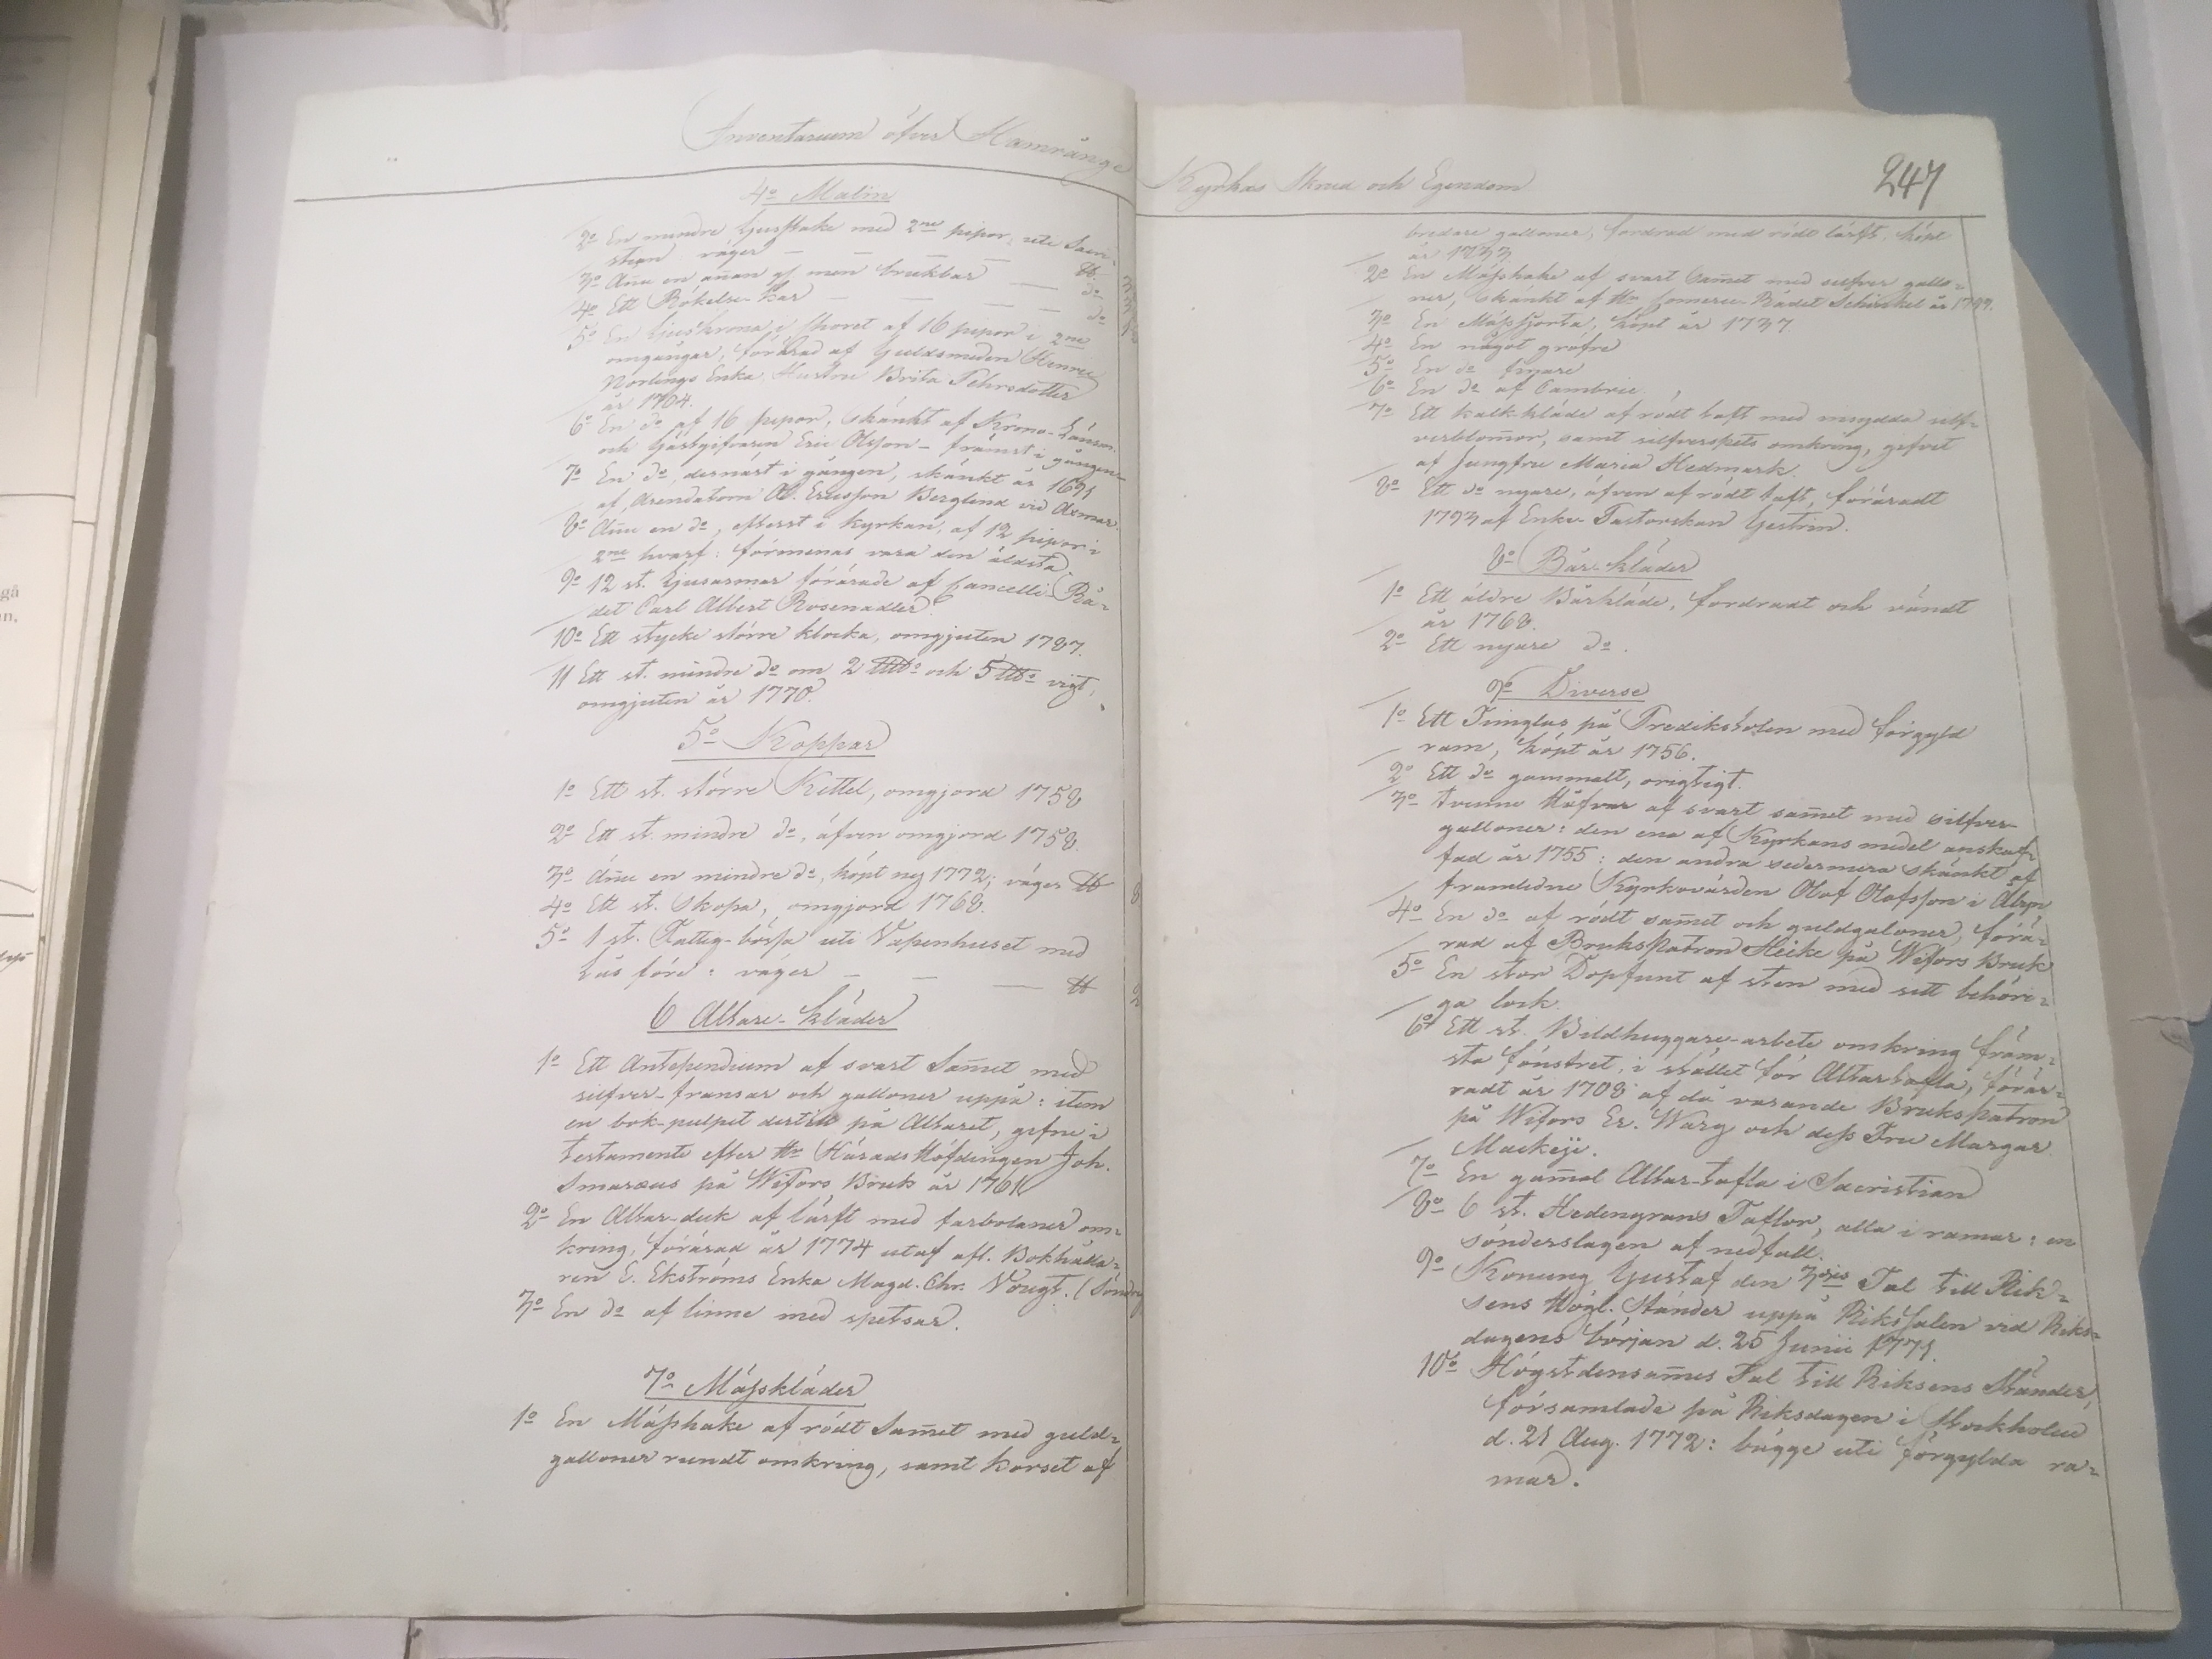 Inventarium öfver Hamrånge
4o Malm
2o En mindre Ljusstake med 2ne pipor, uti Sacri-
stian väger — — — ℔.
3o Ännu en annan gl. men brukbar — do
4o Ett Rökelse-kar — — — — do
5o En Ljuskrona i Choret af 16 pipor i 2ne
omgångar, förärad af Guldsmeden Henric
Norlings Enka Hustru Brita Pehrsdotter
år 1704.
6o En do af 16 pipor, skänkt af Krono-Länsm.
och Gästgifvaren Eric Olsson - främst i gången
7o En do, dernäst i gången, skänkt år 1691
af Arendatorn Ol. Ericsson Berglund vid Axmar.
8o Ännu en do, efterst i kyrkan, af 12 pipor i
2ne hvarf: förmenas vara den äldsta.
9o 12 st. Ljusarmar förärade af Cancelli-Rå-
det Carl Albert Rosenadler.
10o Ett stycke större klocka, omgjuten 1787.
11 Ett st. mindre do om 2 och 5 vigt,
omgjuten år 1770.
5o Koppar
1o Ett st. större Kettel, omgjord 1758
2o Ett st. mindre do, äfven omgjord 1758.
3o Ännu en mindre do, köpt ny 1772; väger ℔ 8
4o Ett st. Skopa, omgjord 1768.
5o 1 st. Fattig-bössa uti Vapenhuset med
Lås före: väger — — — ℔ 2
6 Altare-kläder
1o Ett Antependium af svart Sam̅et med
silfver-fransar och galloner uppå: item
en bok-pulpet dertill på Altaret, gefne i
testamente efter Hr Härads Höfdingen Joh.
Smaræus på Wifors Bruk år 1761
2o En Altar-duk af lärft med farbolaner om-
kring, förärad år 1774 utaf afl. Bokhålla-
ren E. Ekströms Enka Magd. Chr. Vougt. (Söndrig
3o En do af linne med spetsar.
7o Mässkläder
1o En Mässhake af rödt Sam̅et med guld-
galloner rundt omkring, samt korset af
Kyrkas Skrud och Egendom
247
bredare galloner, fordrad med rödt lärft, köpt
år 1733.
2o En Mässhake af svart Sam̅et med silfver gallo-
ner, skänkt af Hr Commerce-Rådet Schinkel år 1799.
3o En Mässkjorta, köpt år 1737.
4o En något gröfre
5o En do finare
6o En do af Cambric
7o Ett kalkkläde af rödt taft med insydda silf-
verblom̅or, samt silfverspets omkring, gifvet
af Jungfru Maria Hedmark.
8o Ett do nyare, äfven af rödt taft, föräradt
1793 af Enke-Pastorskan Gestrin.
8o Bår-kläder
1o Ett äldre Bårkläde, fordradt och vändt
år 1768.
2o Ett nyare do.
9o Diverse
1o Ett Timglas på Predikstolen med förgyld
ram, köpt år 1756.
2o Ett do gammalt, origtigt.
3o Tvenne Håfvar af svart sam̅et med silfver-
galloner: den ena af Kyrkans medel anskaf-
fad år 1755: den andra sedermera skänkt af
framledne Kyrkovärden Olof Olofsson i Åbyn
4o En do af rödt sam̅et och guldgaloner, förä-
rad af Brukspatron Heike på Wifors Bruk
5o En stor Dopfunt af sten med sitt behöri-
ga lock.
6o Ett st. Bildhuggare-arbete omkring främ-
sta fönstret, i stället för Altartafla, förär-
radt år 1708 af då varande Brukspatron
på Wifors Er. Warg och dess Fru Margar.
Mackeije.
7o En gam̅al Altar-tafla i Sacristian
8o 6 st. Hedengrans Taflor, alla i ramar: en
sönderslagen af nedfall.
9o Konung Gustaf den 3djes Tal till Rik-
sens Högl. Ständer uppå Rikssalen vid Riks-
dagens början d. 25 Junii 1771.
10o Högstdensam̅es Tal till Riksens Ständer,
församlade på Riksdagen i Stockholm
d. 21 Aug. 1772: bägge uti förgylda ra-
mar.